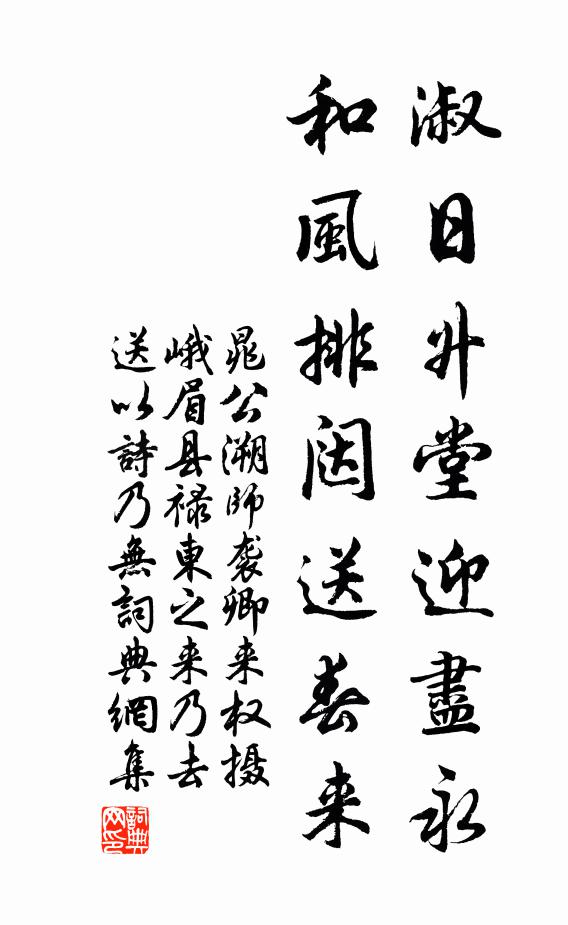 淑日升堂迎盡永
和風排闼送春来
晁公溯师袭卿来权摄
峨眉县禄東之来乃去
送以詩乃無詞典網集
詞典网印